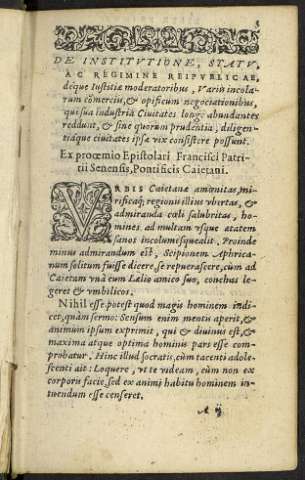 3
DE INSTITVTIONE, STATV,
AC REGIMINE REIPVBLICAE,
deque Iustitiæ moderatoribus, Variis incola-
rum cōmerciis, & opificum negociationibus,
qui sua industria Ciuitates longe abundantes
reddunt, & sine quorum prudentia, diligen-
tiáque ciuitates ipsæ vix consistere possunt.
Ex proœmio Epistolari Francisci Patri-
tii Senensis, Pontificis Caietani.
VRBIS Caietanæ amœnitas, mi-
rificáq; regionis illius vbertas, &
admiranda cœli salubritas, ho-
mines ad multam vsque ætatem
sanos incolumésque alit. Proinde
minus admirandum est, Scipionem Aphrica-
num solitum fuisse dicere, se repuerascere, cùm ad
Caietam vnà cum Lælio amico suo, conchas le-
geret & vmbilicos.
Nihil esse potest quod magis hominem indi-
cet, quàm sermo: Sensum enim mentis aperit, &
animum ipsum exprimit, qui & diuinus est, &
maxima atque optima hominis pars esse com-
probatur. Hinc illud Socratis, cùm tacenti adole-
scenti ait: Loquere, vt te videam, cùm non ex
corporis facie, sed ex animi habitu hominem in-
tuendum esse censeret.
A ij